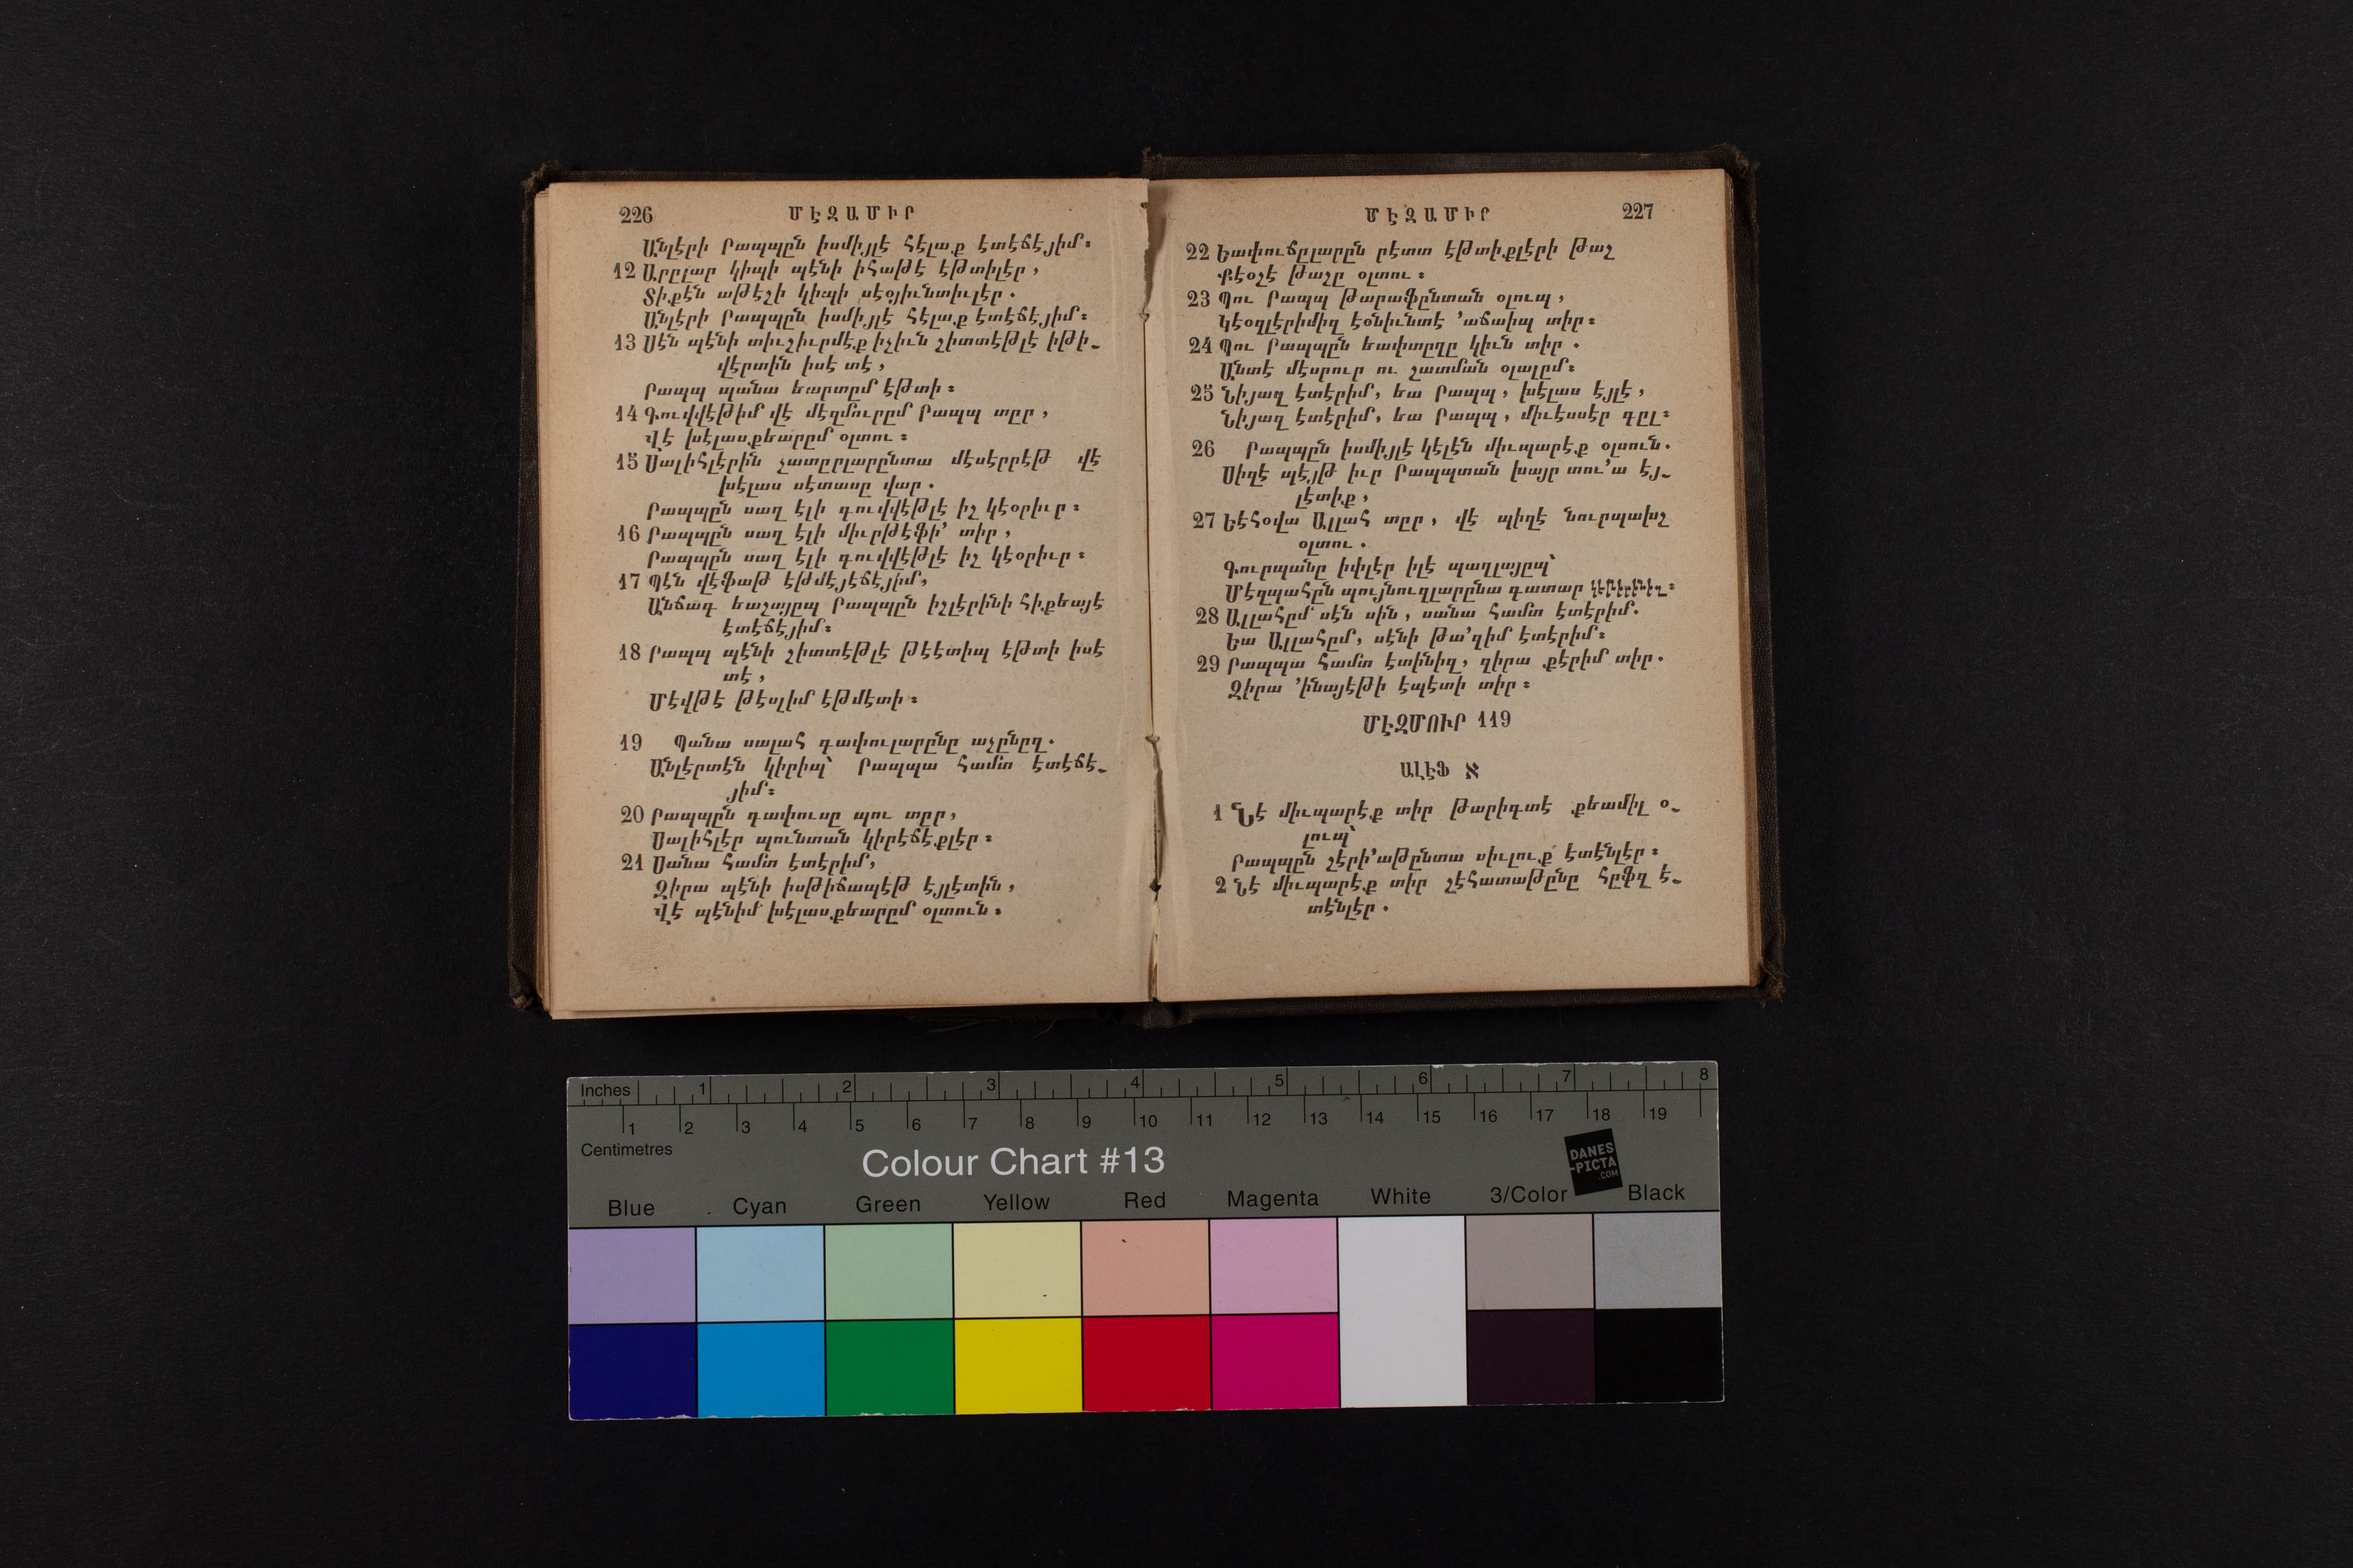 226 ՄԷԶԱՄԻՐ
Անլէրի Րապպըն իսմիյլէ հէլաք էտէճէյիմ։
12 Արըլար կիպի պէնի իհաթէ էթտիլէր,
Տիքէն աթէշի կիպի սէօյիւնտիւլէր.
Անլէրի Րապպըն իսմիյլէ հէլաք էտէճէյիմ։
13 Սէն պէնի տիւշիւրմէք իչիւն շիտտէթլէ իթի-
վէրտին իսէ տէ,
Րապպ պանա եարտըմ էթտի։
14 Գուվվէթիմ վէ մէզմուրըմ Րապպ տըր,
Վէ խէլասքեարըմ օլտու։
15 Սալիհլէրին չատըրլարընտա մէսէրրէթ վէ
խէլաս սէտասը վար.
Րապպըն սաղ էլի գուվվէթլէ իշ կէօրիւր։
16 Րապպըն սաղ էլի միւրթէֆի՚ տիր,
Րապպըն սաղ էլի գուվվէթլէ իշ կէօրիւր։
17 Պէն վէֆաթ էթմէյէճէյիմ,
Անճագ եաշայըպ Րապպըն իշլէրինի հիքեայէ
էտէճէյիմ։
18 Րապպ պէնի շիտտէթլէ թէէտիպ էթտի իսէ
տէ,
Մէվթէ թէսլիմ էթմէտի։
19 Պանա սալահ գափուլարընը աչընըզ.
Անլէրտէն կիրիպ՝ Րապպա համտ էտէճէ-
յիմ։
20 Րապպըն գափուսը պու տըր,
Սալիհլէր պունտան կիրէճէքլէր։
21 Սանա համտ էտէրիմ,
Զիրա պէնի իսթիճապէթ էյլէտին,
Վէ պէնիմ խէլասքեարըմ օլտուն։
ՄԷԶԱՄԻՐ 227
22 Եափուճըլարըն րէտտ էթտիքլէրի թաշ
Քէօշէ թաշը օլտու։
23 Պու Րապպ թարաֆընտան օլուպ,
Կէօզլէրիմիզ էօնիւնտէ ՚աճաիպ տիր։
24 Պու Րապպըն եափտըղը կիւն տիր.
Անտէ մէսրուր ու շատման օլալըմ։
25 Նիյազ էտէրիմ, եա Րապպ, խէլաս էյլէ,
Նիյազ էտէրիմ, եա Րապպ, միւէսսէր գըլ։
26 Րապպըն իսմիյլէ կէլէն միւպարէք օլսուն.
Սիզէ պէյթ իւր Րապպտան խայր տու՚ա էյ-
լէտիք,
27 Եէհօվա Ալլահ տըր, վէ պիզէ նուրպախշ
օլտու.
Գուրպանը իփլէր իլէ պաղլայըպ՝
Մէզպահըն պույնուզլարընա գատար կէթիրինիզ։
28 Ալլահըմ սէն սին, սանա համտ էտէրիմ.
Եա Ալլահըմ, սէնի թա՚զիմ էտէրիմ։
29 Րապպա համտ էտինիզ, զիրա քէրիմ տիր.
Զիրա ՚ինայէթի էպէտի տիր։
ՄԷԶՄՈՒՐ 119
ԱԼԷՖ א
1 Նէ միւպարէք տիր թարիգտէ քեամիլ օ-
լուպ՝
Րապպըն շէրի՚աթընտա սիւլուք էտէնլէր։
2 Նէ միւպարէք տիր շէհատաթընը հըֆզ է-
տէնլէր.
Inches 1 2 3 4 5 6 7 8
1 2 3 4 5 6 7 8 9 10 11 12 13 14 15 16 17 18 19
Centimetres
Colour Chart #13
DANES
-PICTA
.COM
Blue Cyan Green Yellow Red Magenta White 3/Color Black